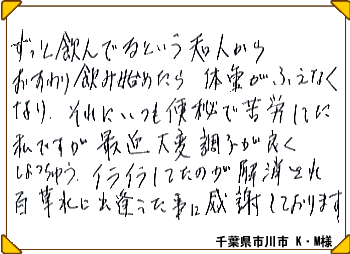 ずっと飲んでるという知人から
おすわり飲み始めたら 体重がふえなく
なり、それにいつも便秘で苦労してた
私ですが最近大変調子が良く
しょっちゅう、イライラしてたのが解消され
百草丸に出逢うた事に感謝しております。
千葉県市川市 K・M様